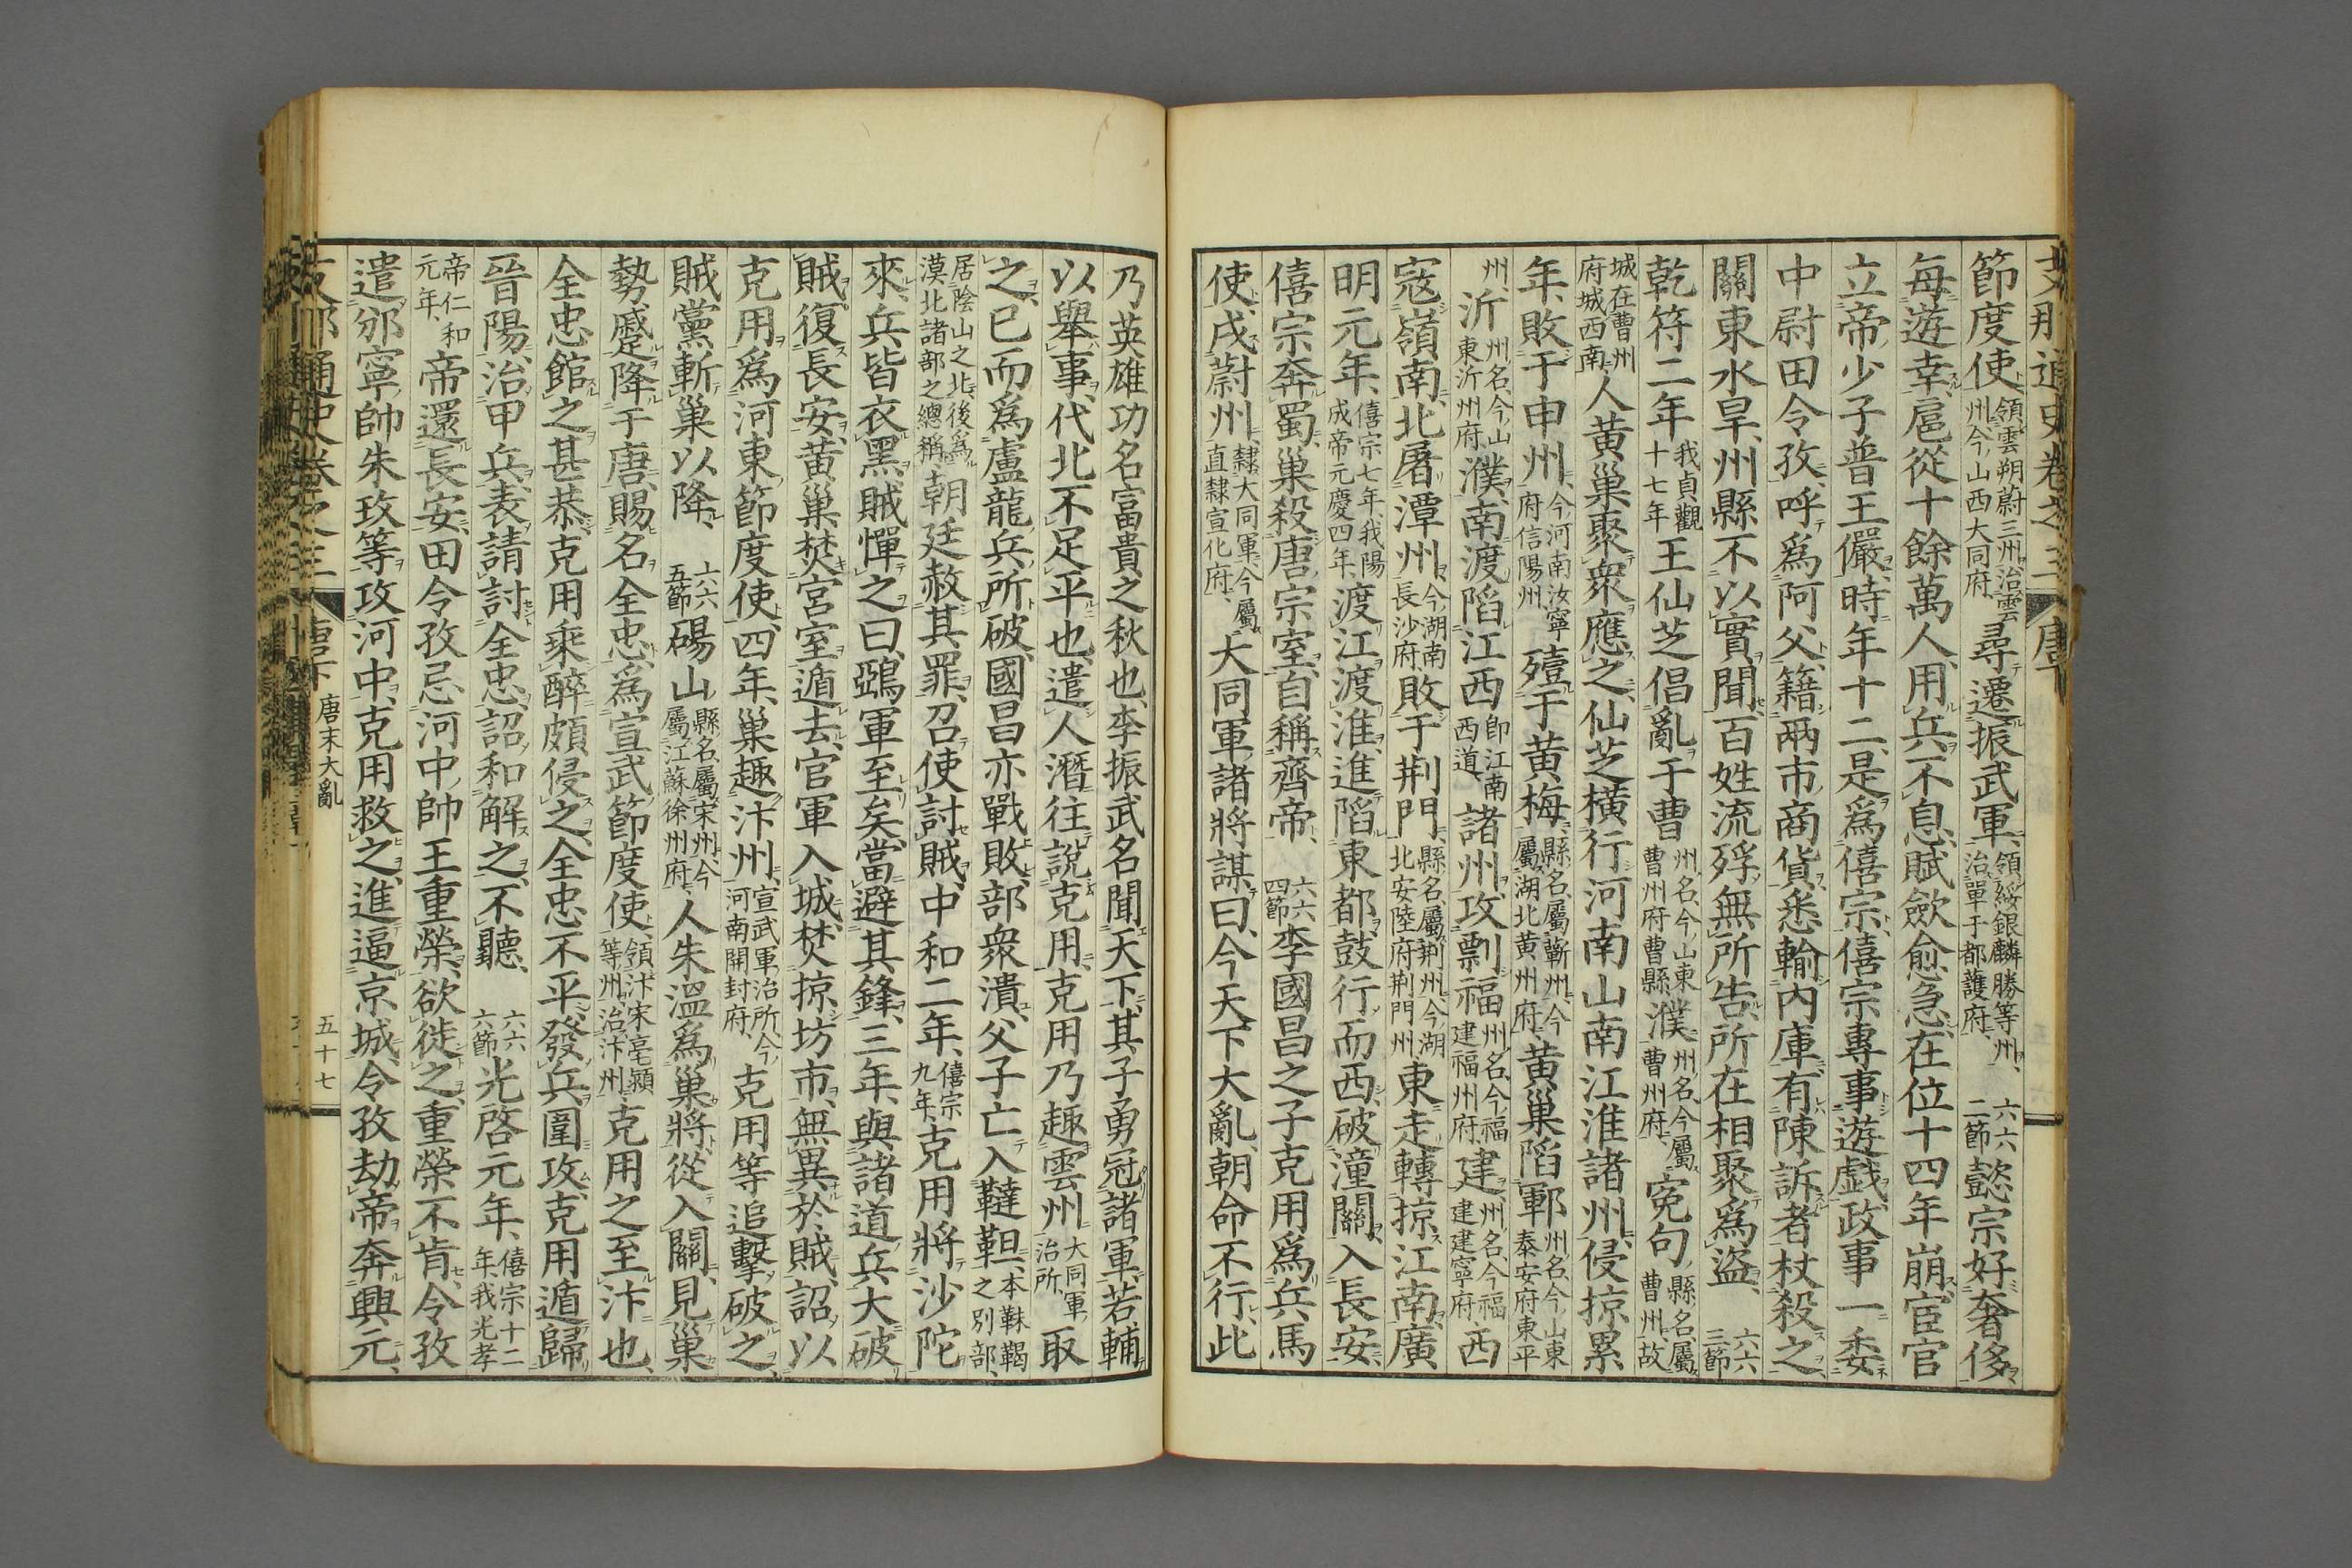 支那通史卷之三 唐下
節度使、領雲朔蔚三州、治雲州、今山西大同府、尋遷振武軍、領綏銀麟勝等州、治單于都護府、六六二節懿宗好奢侈、
每遊幸、扈從十餘萬人、用兵不息、賦斂愈急、在位十四年崩、宦官
立帝少子普王儼、時年十二、是爲僖宗、僖宗專事遊戯、政事一委
中尉田令孜、呼爲阿父、籍兩市商貨、悉輸內庫、有陳訴者杖殺之、
關東水旱、州縣不以實聞、百姓流殍、無所告、所在相聚爲盜、六六三節
乾符二年我貞觀十七年王仙芝倡亂于曹州名、今山東曹州府曹縣、濮州名、今屬曹州府、寃句縣名、屬曹州、故
城在曹州府城西南、人黃巢聚衆應之、仙芝橫行河南山南江淮諸州、侵掠累
年、敗于申州、今河南汝寧府信陽州、殪于黃梅、縣名、屬蘄州、今屬湖北黃州府、黃巢陷鄆州名、今山東泰安府東平
州、沂州名、今山東沂州府、濮、南渡陷江西卽江南西道、諸州、攻剽福州名、今福建福州府、建州名、今福建建寧府、西
寇嶺南、北屠潭州、今湖南長沙府、敗于荆門、縣名、屬荆州、今湖北安陸府荆門州、東走轉掠江南、廣
明元年、僖宗七年、我陽成帝元慶四年、渡江渡淮、進陷東都、鼓行而西、破潼關、入長安、
僖宗奔蜀、巢殺唐宗室、自稱齊帝、六六四節李國昌之子克用爲兵馬
使、戍蔚州、隸大同軍、今屬直隸宣化府、大同軍諸將謀曰、今天下大亂、朝命不行、此
乃英雄功名富貴之秋也、李振武名聞天下、其子勇冠諸軍、若輔
以舉事、代北不足平也、遣人潛往說克用、克用乃趣雲州大同軍治所、取
之、已而爲盧龍兵所破、國昌亦戰敗、部衆潰、父子亡入韃靼、本靺鞨之別部、
居陰山之北、後爲漠北諸部之總稱、朝廷赦其罪、召使討賊、中和二年、僖宗九年、克用將沙陀
來、兵皆衣黑、賊憚之曰、鵶軍至矣、當避其鋒、三年、與諸道兵大破
賊、復長安、黃巢焚宮室遁去、官軍入城、焚掠坊市、無異於賊、詔以
克用爲河東節度使、四年、巢趣汴州、宣武軍治所、今河南開封府、克用等追擊破之、
賊黨斬巢以降、六六五節碭山縣名、屬宋州、今屬江蘇徐州府、人朱溫爲巢將、從入關、見巢
勢蹙、降于唐、賜名全忠、爲宣武節度使、領汴宋亳潁等州、治汴州、克用之至汴也、
全忠館之甚恭、克用乘醉頗侵之、全忠不平、發兵圍攻、克用遁歸
晉陽、治甲兵、表請討全忠、詔和解之、不聽、六六六節光啓元年、僖宗十二年、我光孝
帝仁和元年、帝還長安、田令孜忌河中帥王重榮、欲徙之、重榮不肯、令孜
遣邠寧帥朱玫等攻河中、克用救之、進逼京城、令孜劫帝奔興元、
支那通史卷之三 唐下 唐末大亂 五十七